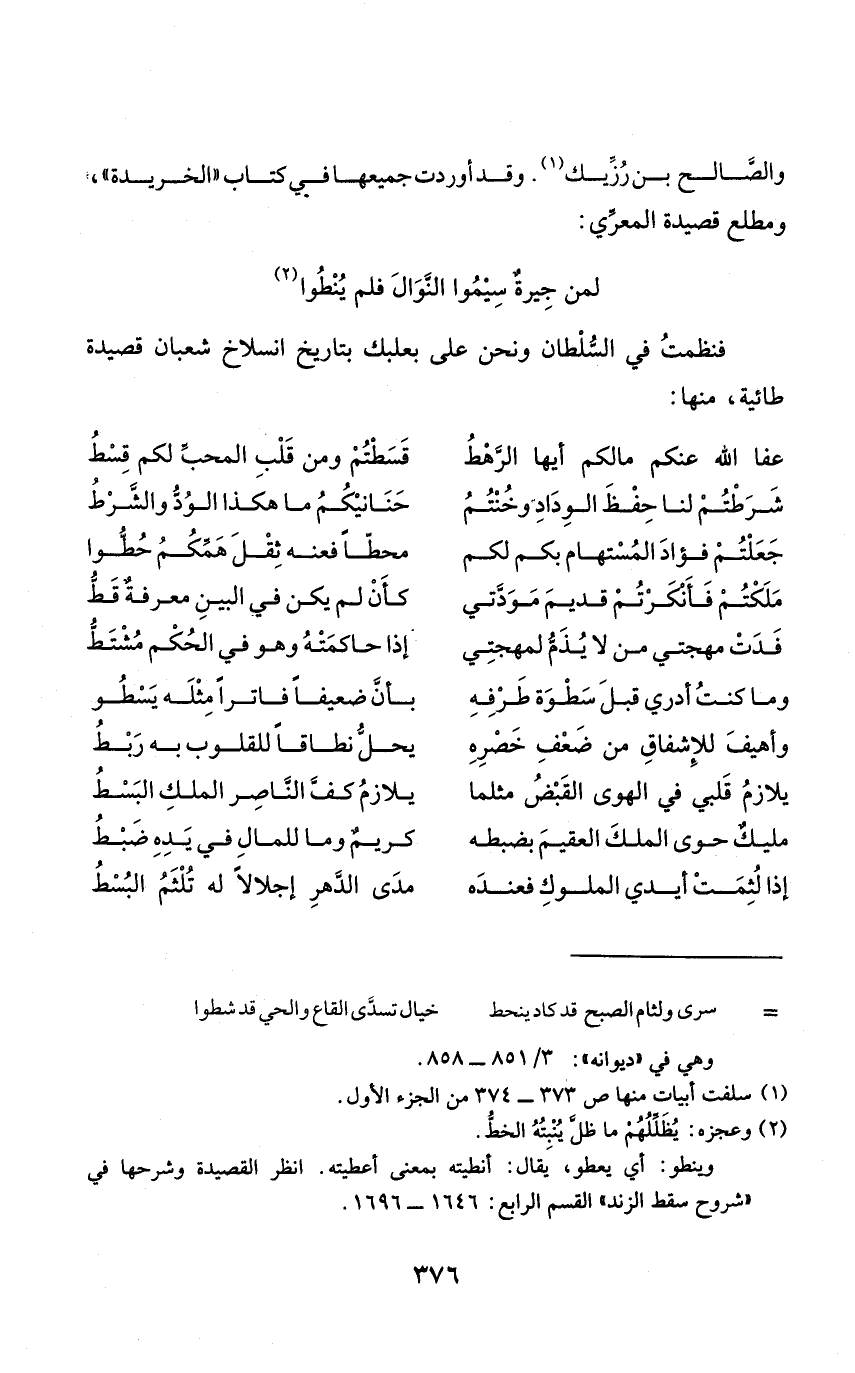 والصَّالح بن رُزِّيك(١). وقد أوردت جميعها في كتاب «الخريدة»،
ومطلع قصيدة المعرِّي:
لمن جِيرةٌ سِيْمُوا النَّوَالَ فلم يُنْطُوا(٢)
فنظمتُ في السُّلْطان ونحن على بعلبك بتاريخ انسلاخ شعبان قصيدة
طائية، منها:
عفا الله عنكم مالكم أيها الرَّهْطُ قَسَطْتُمْ ومن قَلْبِ المحبِّ لكم قِسْطُ
شَرَطْتُمْ لنا حِفْظَ الودَادِ وخُنْتُمُ حَنَانيْكُمُ ما هكذا الودُّ والشَّرْطُ
جَعَلْتُمْ فؤادَ المُسْتهام بكم لكم محطّاً فعنه ثِقْلَ هَمِّكُمُ حُطُّوا
مَلَكْتُمْ فَأَنْكَرْتُمْ قديمَ مَوَدَّتي كأَنْ لم يكن في البينِ معرفةٌ قَطُّ
فَدَتْ مهجتي من لا يُذَمُّ لمهجتِي إذا حاكمَتْهُ وهو في الحُكْم مُشْتَطُّ
وما كنتُ أدري قبلَ سَطْوَة طَرْفِهِ بأنَّ ضعيفاً فاتراً مِثْلَه يَسْطُو
وأهيفَ للإشفاقِ من ضَعْفِ خَصْرِه يحلُّ نطاقاً للقلوب به رَبْطُ
يلازمُ قَلبي في الهوى القَبْضُ مثلما يلازمُ كفَّ النَّاصِر الملكِ البَسْطُ
مليكٌ حوى الملكَ العقيمَ بضبطه كريمٌ وما للمالِ في يَدِهِ ضَبْطُ
إذا لُثِمَتْ أيدي الملوكِ فعندَه مدَى الدَّهرِ إجلالاً له تُلْثَمُ البُسْطُ
= سرى ولثام الصبح قد كاد ينحط خيال تسدَّى القاع والحي قد شطوا
وهي في «ديوانه»: ٣/ ٨٥١ ــ ٨٥٨.
(١) سلفت أبيات منها ص ٣٧٣ ــ ٣٧٤ من الجزء الأول.
(٢) وعجزه: يُظَلِّلُهُمْ ما ظلَّ يُنْبِتُهُ الخطُّ.
وينطو: أي يعطو، يقال: أنطيته بمعنى أعطيته. انظر القصيدة وشرحها في
«شروح سقط الزند» القسم الرابع: ١٦٤٦ ــ ١٦٩٦.
٣٧٦